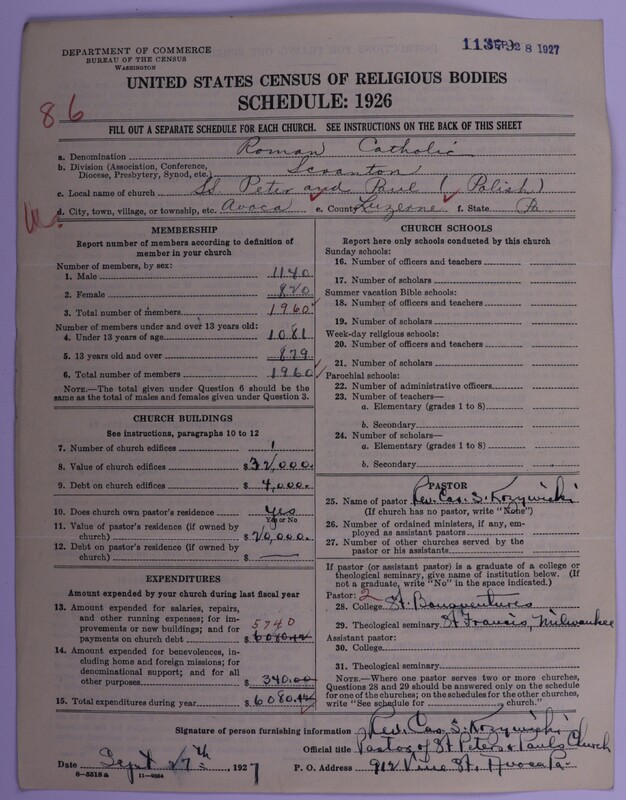 DEPARTMENT OF COMMERCE
BUREAU OF THE CENSUS
WASHINGTON
28 1927
UNITED STATES CENSUS OF RELIGIOUS BODIES
SCHEDULE: 1926
86
FILL OUT A SEPARATE SCHEDULE FOR EACH CHURCH. SEE INSTRUCTIONS ON THE BACK OF THIS SHEET
a. Denomination Roman Catholic
b. Division (Association, Conference, Diocese, Presbytery, Synod, etc.) Scranton
c. Local name of church Peter and Paul (Polish)
d. City, town, village, or township, etc. Avoca e. County Luzerne f. State Pa
MEMBERSHIP
Report number of members according to definition of
member in your church
Number of members, by sex:
1. Male 1140
2. Female 820
3. Total number of members 1960
Number of members under and over 13 years old:
4. Under 13 years of age 1081
5. 13 years old and over 879
6. Total number of members 1960
NOTE.—The total given under Question 6 should be the
same as the total of males and females given under Question 3.
CHURCH BUILDINGS
See instructions, paragraphs 10 to 12
7. Number of church edifices 1
8. Value of church edifices $32,000.
9. Debt on church edifices $4,000.
10. Does church own pastor's residence yes
Yes or No
11. Value of pastor's residence (if owned by
church) $20,000.
12. Debt on pastor's residence (if owned by
church) $ —
EXPENDITURES
Amount expended by your church during last fiscal year
13. Amount expended for salaries, repairs,
and other running expenses; for im-
provements or new buildings; and for 5740
payments on church debt $6080.44
14. Amount expended for benevolences, in-
cluding home and foreign missions; for
denominational support; and for all
other purposes $340.00
15. Total expenditures during year $6080.44
CHURCH SCHOOLS
Report here only schools conducted by this church
Sunday schools:
16. Number of officers and teachers
17. Number of scholars
Summer vacation Bible schools:
18. Number of officers and teachers
19. Number of scholars
Week-day religious schools:
20. Number of officers and teachers
21. Number of scholars
Parochial schools:
22. Number of administrative officers
23. Number of teachers—
a. Elementary (grades 1 to 8)
b. Secondary
24. Number of scholars—
a. Elementary (grades 1 to 8)
b. Secondary
PASTOR
25. Name of pastor Rev. Cas. S. Kozywicki
(If church has no pastor, write "None")
26. Number of ordained ministers, if any, em-
ployed as assistant pastors
27. Number of other churches served by the
pastor or his assistants
If pastor (or assistant pastor) is a graduate of a college or
theological seminary, give name of institution below. (If
not a graduate, write "No" in the space indicated.)
Pastor: 2
28. College St. Bonaventures
29. Theological seminary St Francis, Milwaukee
Assistant pastor:
30. College
31. Theological seminary
NOTE.—Where one pastor serves two or more churches,
Questions 28 and 29 should be answered only on the schedule
for one of the churches; on the schedules for the other churches,
write "See schedule for church."
Signature of person furnishing information Rev. Cas. S. Kozywicki
Official title Pastor of St Peters & Pauls Church
Date Sept 27th, 1927 P. O. Address 912 Vine St, Avoca Pa.
8—5518 a 11—9554